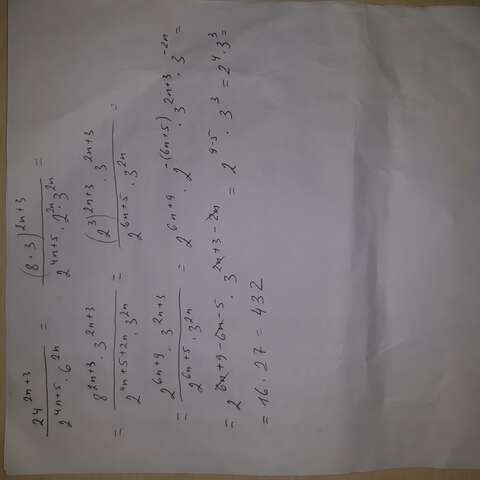 24^{2n+3} / (2^{4n+5} · 6^{2n}) = (8·3)^{2n+3} / (2^{4n+5} · 2^{2n} · 3^{2n}) =
= 8^{2n+3} · 3^{2n+3} / (2^{4n+5+2n} · 3^{2n}) = (2^3)^{2n+3} · 3^{2n+3} / (2^{6n+5} · 3^{2n}) =
= 2^{6n+9} · 3^{2n+3} / (2^{6n+5} · 3^{2n}) = 2^{6n+9} · 2^{-(6n+5)} · 3^{2n+3} · 3^{-2n} =
= 2^{6n+9-6n-5} · 3^{2n+3-2n} = 2^{9-5} · 3^3 = 2^4 · 3^3 =
= 16 · 27 = 432